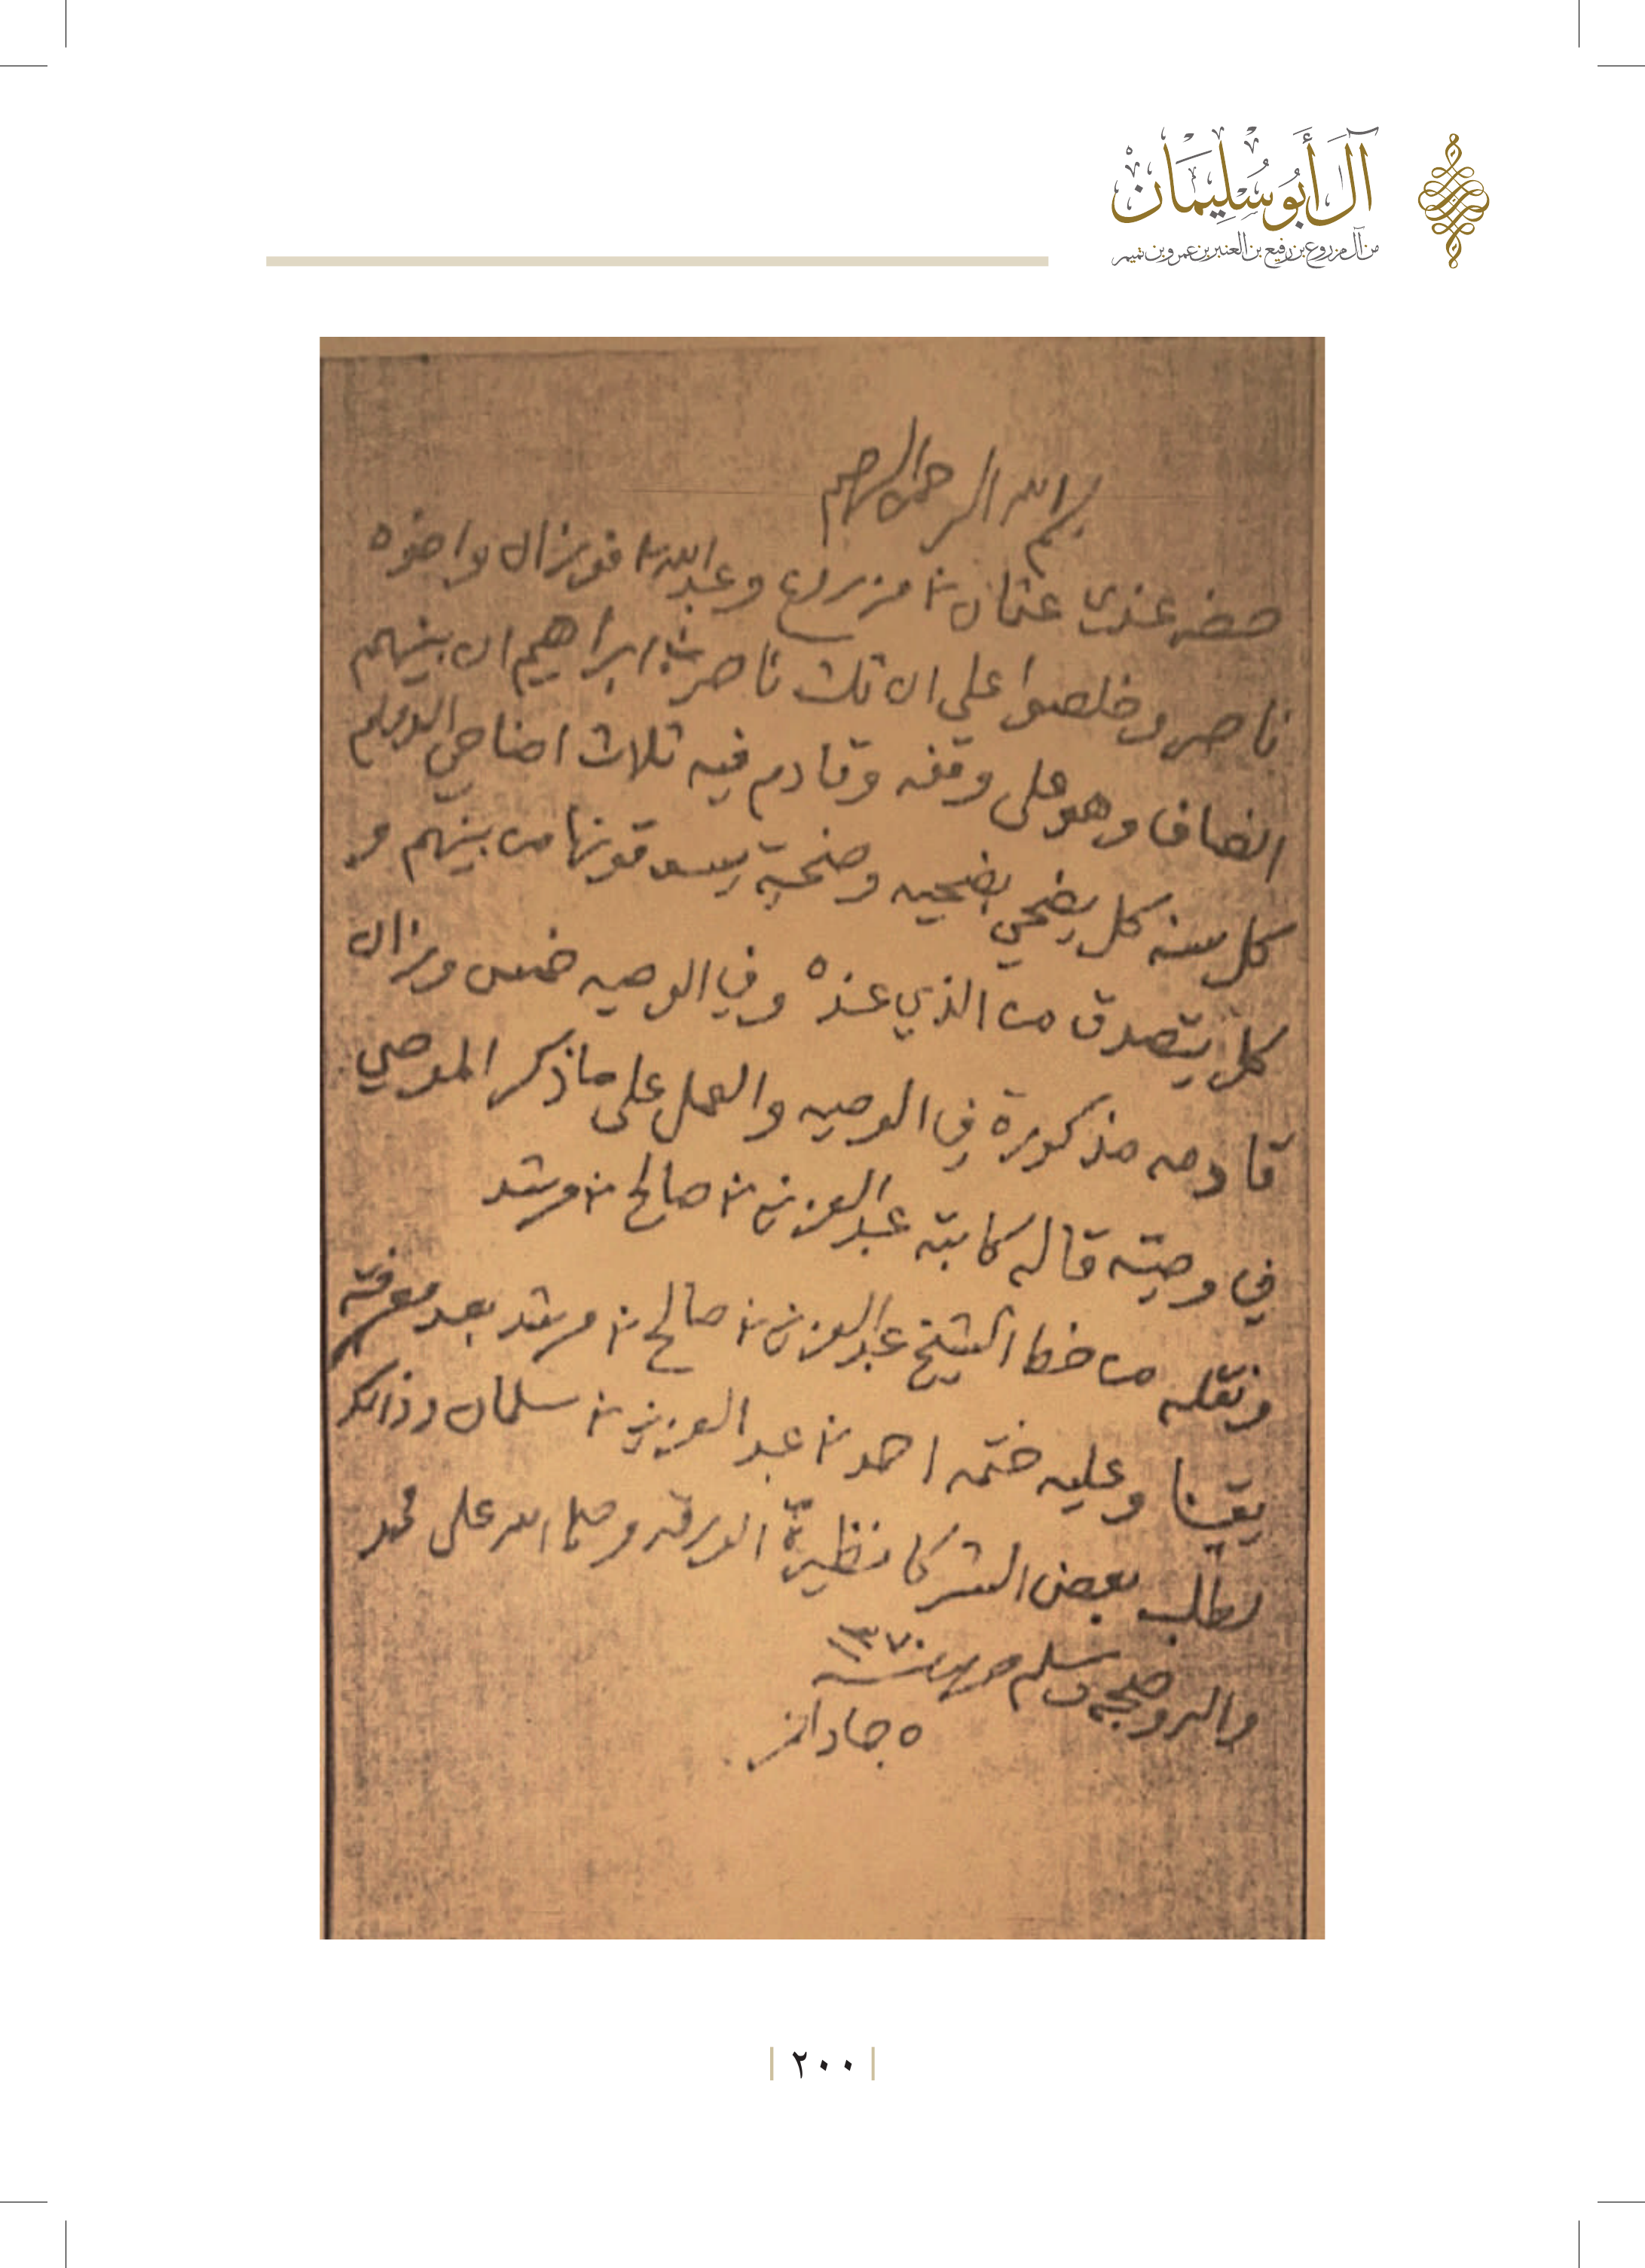 آل أبو سليمان
من آل مزروع بن رفيع بن العنبر بن عمرو بن تميم
بسم الله الرحمن الرحيم
حضر عندي عثمان بن مزروع وعبدالله بن فوزان واخوه
ناصر وخلصوا على ان ثلث ناصر بن ابراهيم ان بينهم
انصاف وهو على وقفه وقادم فيه ثلاث اضاحي الدوام
كل سنه كل يضحي بضحيه وضحية يسوقونها من بينهم و
كل يتصدق من الذي عنده وفي الوصيه خمس وزان
قادمه مذكورة في الوصيه والعمل على ما ذكر الموصي
في وصيته قاله كاتبه عبدالعزيز بن صالح بن مرشد
ونقله من خط الشيخ عبدالعزيز بن صالح بن مرشد بعد معرفته
يقينا وعليه ختمه احمد بن عبد العزيز بن سلمان وذالك
لطلب بعض الشركا نظيرة الورقه وصلى الله على محمد
واله وصحبه وسلم سنة ١٣٧٠
٥ جماد
٢٠٠